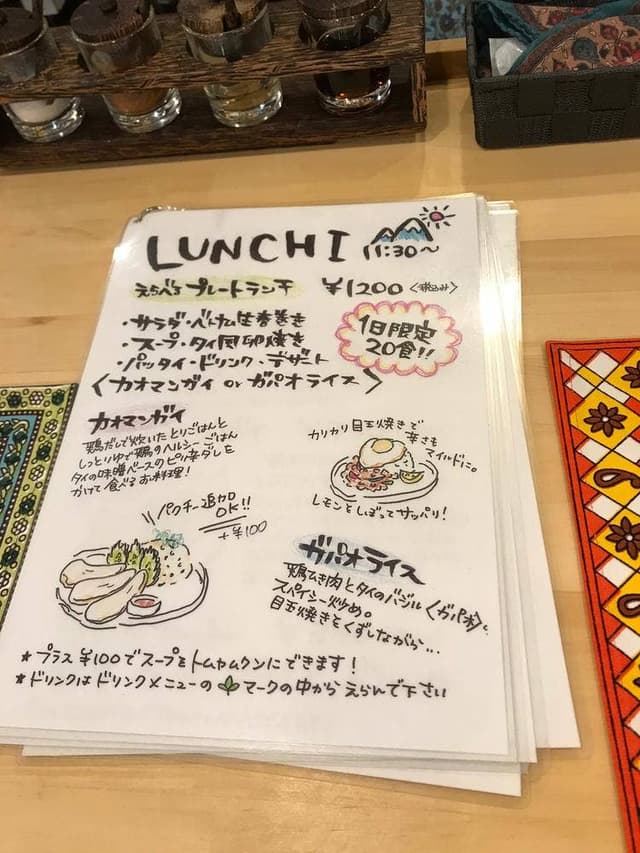 LUNCHI 11:30〜
えらべるプレートランチ ¥1200〈税込み〉
・サラダ・ベトナム生春巻き
・スープ・タイ風卵焼き
・パッタイ・ドリンク・デザート
〈カオマンガイ or ガパオライス〉
1日限定
20食!!
カオマンガイ
鶏だしで炊いたとりごはんと
しっとりゆで鶏のヘルシーごはん
タイの味噌ベースのピリ辛ダレを
かけて食べるお料理!
パクチー追加
OK!!
+¥100
カリカリ目玉焼きで
辛さも
マイルドに。
レモンをしぼってサッパリ!
ガパオライス
鶏ひき肉とタイのバジル〈ガパオ〉の
スパイシー炒め。
目玉焼きをくずしながら...
★プラス¥100でスープをトムヤムクンにできます!
★ドリンクはドリンクメニューのマークの中からえらんで下さい